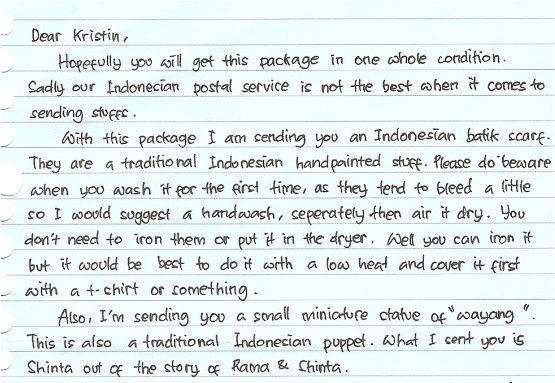 Dear Kristin,
Hopefully you will get this package in one whole condition.
Sadly our Indonesian postal service is not the best when it comes to
sending stuffs.
With this package I am sending you an Indonesian batik scarf.
They are a traditional Indonesian handpainted stuff. Please do beware
when you wash it for the first time, as they tend to bleed a little
so I would suggest a handwash, seperately then air it dry. You
don't need to iron them or put it in the dryer. Well you can iron it
but it would be best to do it with a low heat and cover it first
with a t-shirt or something.
Also, I'm sending you a small miniature statue of "wayang".
This is also a traditional Indonesian puppet. What I sent you is
Shinta out of the story of Rama & Shinta.